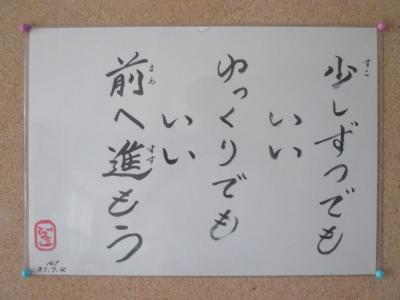 すこ
少しずつでも
いい
ゆっくりでも
いい
まえ すす
前へ進もう